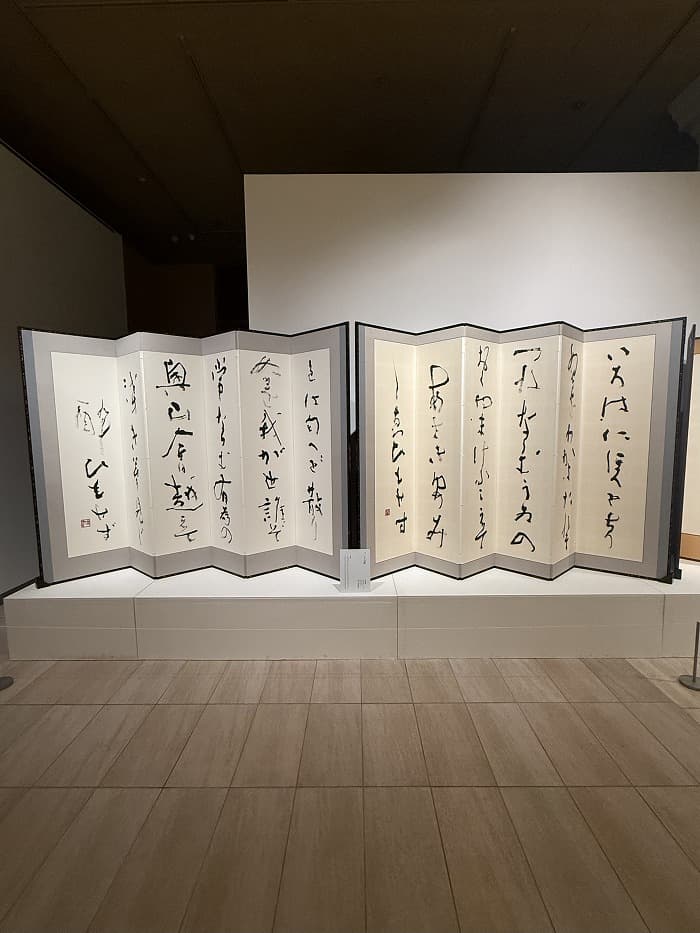 いろは仁保へとちり
ぬるをわかよたれそ
つねならむうゐの
おくやまけふこえて
あさきゆめみ
しゑひもせす
色は匂へど散り
ぬるを我が世誰ぞ
常ならむ有為の
奥山今日越えて
浅き夢見じ
酔ひもせず